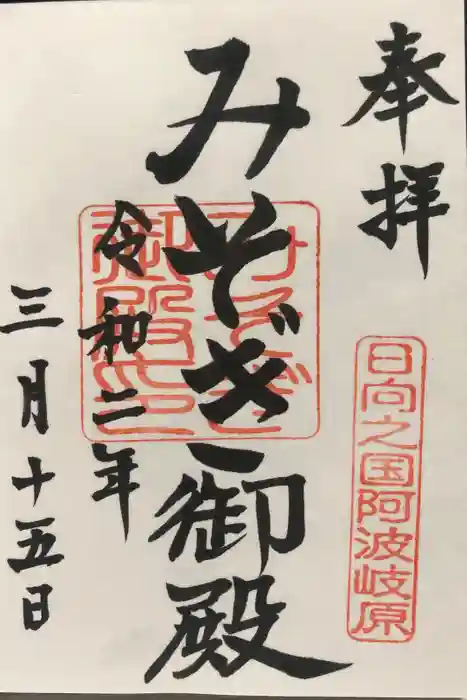 奉拝
日向之国阿波岐原
みそぎ御殿
みそぎ御殿之印
令和二年
三月十五日